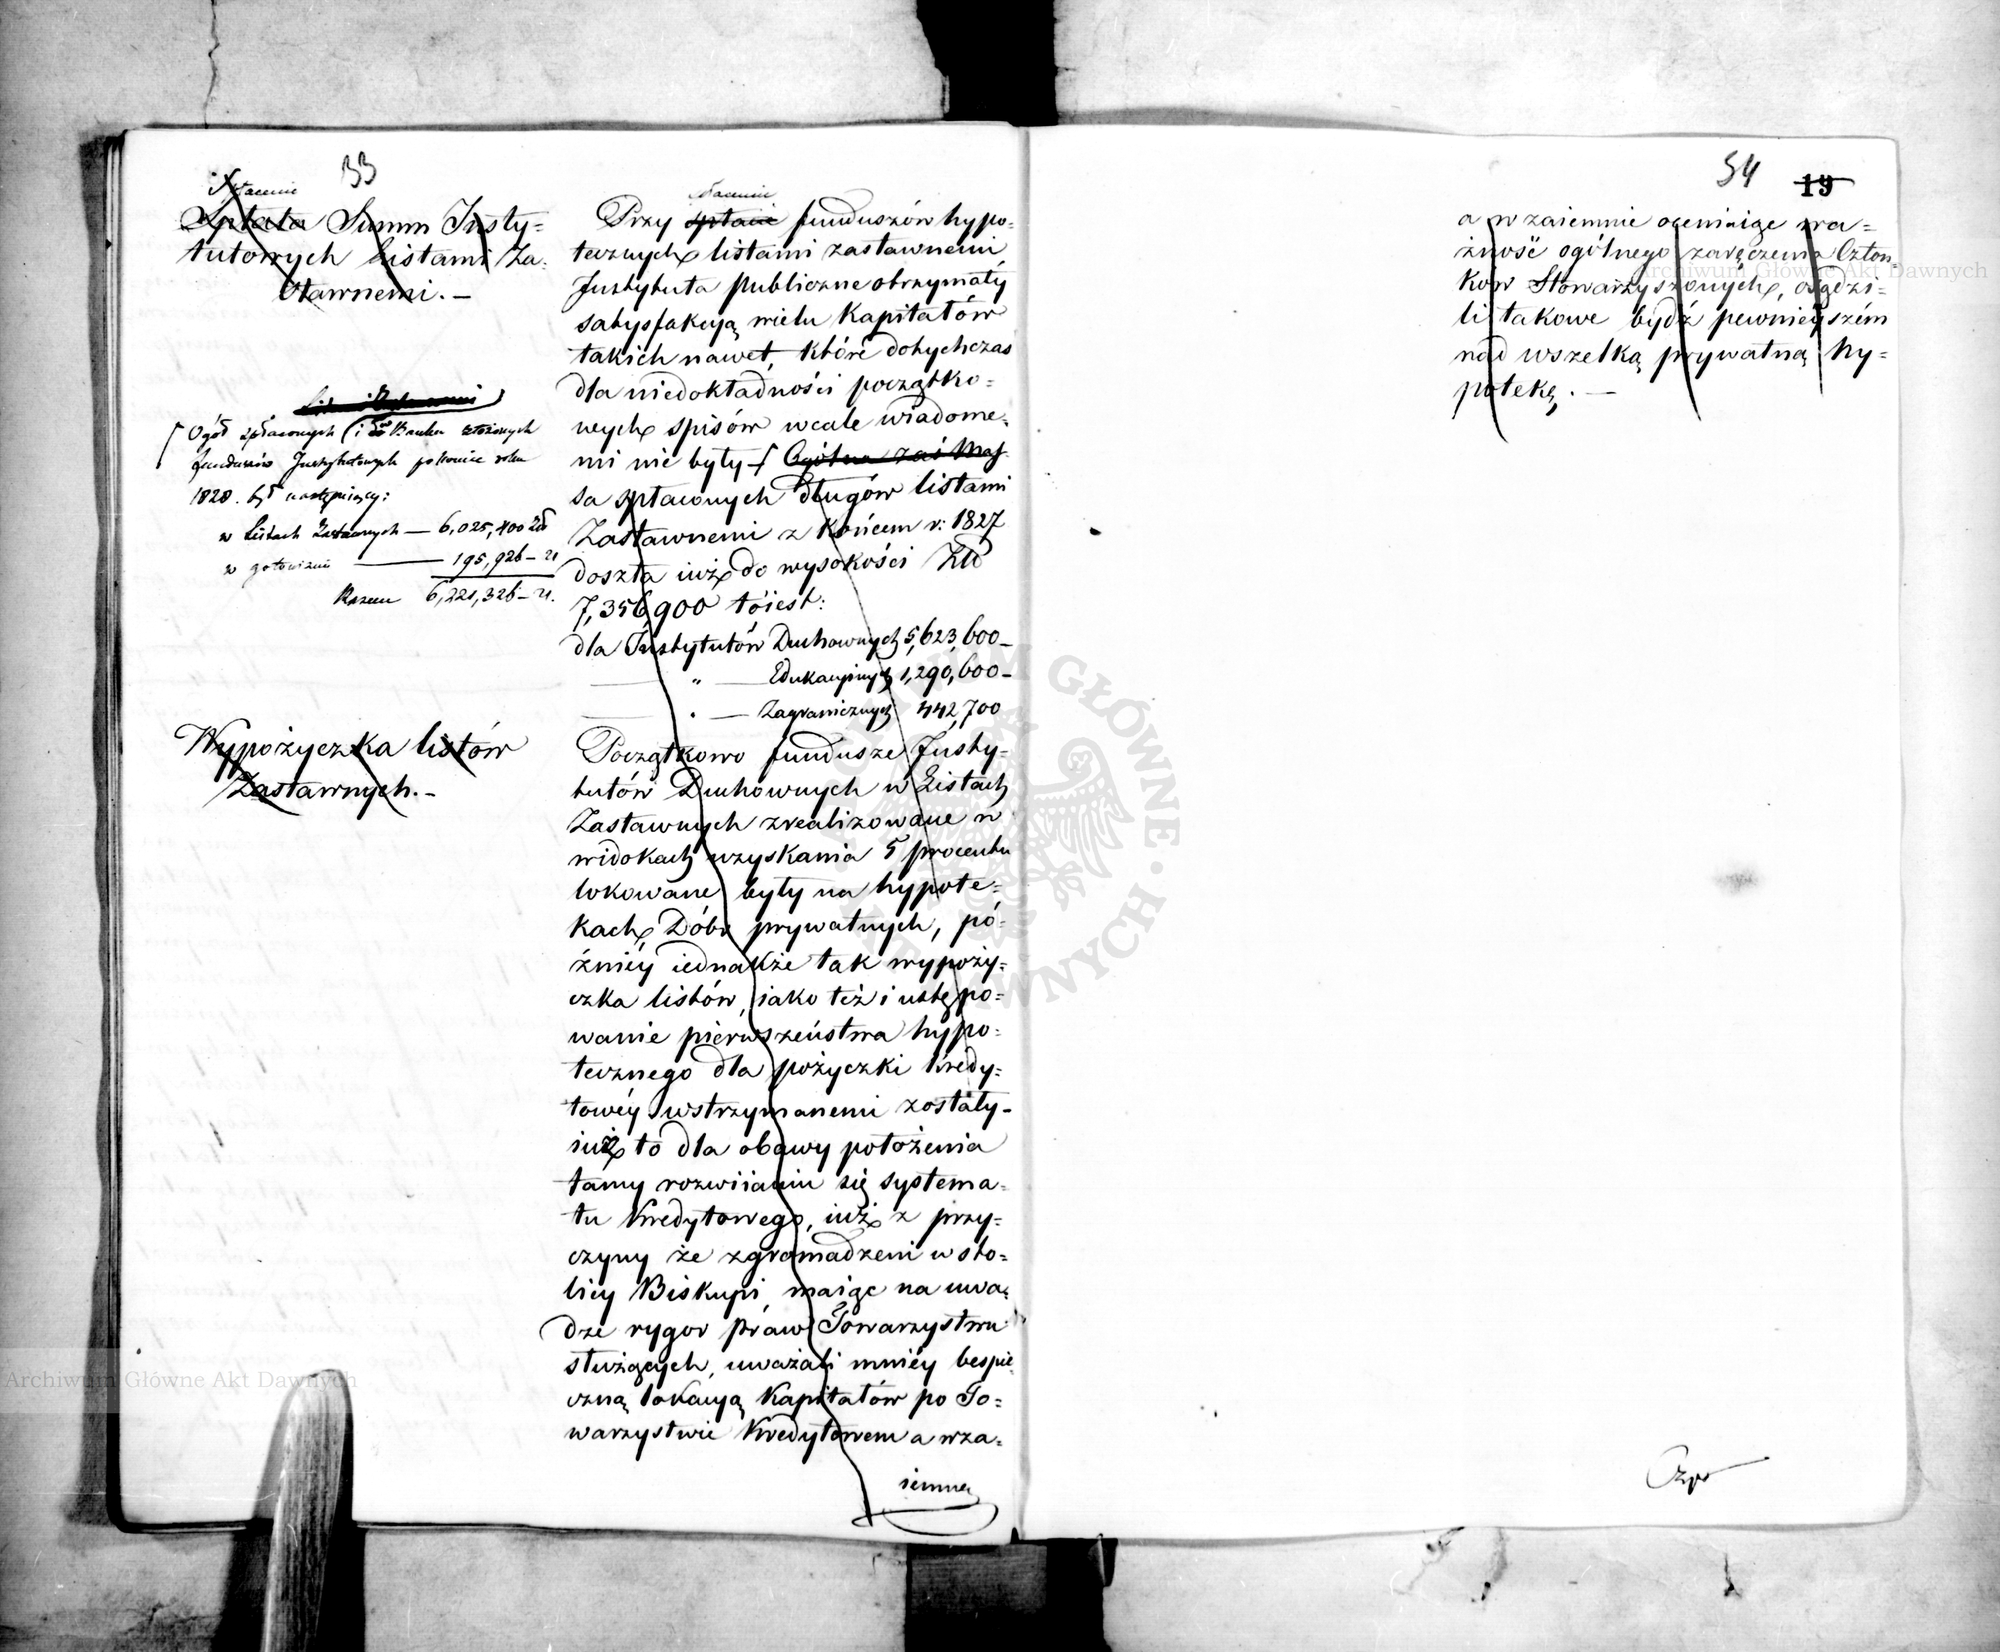 33
Spłacenie
Spłata Summ Insty=
tutowych Listami Za-
stawnemi. –
Listami Zastawnemi
Ogół spłaconych (i do Banku złożonych
funduszów Instytutowych po koniec roku
1828. był następujący:
w Listach Zastawnych — 6,025,400 Zł
w gotowiźnie — 195,926 – "
Razem 6,221,326 – ".
Wypożyczka listów
Zastawnych. –
spłaceniu
Przy spłacie funduszów hypo-
tecznych listami zastawnemi
Instytuta publiczne otrzymały
satysfakcyą wielu Kapitałów
takich nawet, które dotychczas
dla niedokładności początko=
wych spisów wcale wiadome-
mi nie były – Ogólna zaś Mas-
sa spłaconych długów listami
Zastawnemi z końcem r: 1827
doszła iuż do wysokości Złł
7,356,900 tóiest:
dla Instytutów Duchownych 5,623,600 –
— " — Edukacyinych 1,290,600 –
— " — Zagranicznych 442,700
Początkowo fundusze Insty=
tutów Duchownych w Listach
Zastawnych zrealizowane w
widokach uzyskania 5 procentu
lokowane były na hypote=
kach Dóbr prywatnych, pó-
źniéy iednakże tak wypoży=
czka listów, iako też i ustępo=
wanie pierwszeństwa hypo=
tecznego dla pożyczki kredy=
towéy wstrzymanemi zostały –
iuż to dla obawy położenia
tamy rozwiianiu się systema-
tu Kredytowego, iuż z przy=
czyny że zgromadzeni w sto=
licy Biskupi, maiąc na uwa-
dze rygor praw Towarzystwu
służących, uważali mniéy bespie-
czną lokacyą Kapitałów po To=
warzystwie Kredytowem a wza-
iemne
34
19
a wzaiemnie oceniaiąc wa=
żność ogólnego zaręczenia Człon-
ków Stowarzyszonych, osądzi=
li takowe bydź pewnieyszém
nad wszelką prywatną hy=
potekę. —
Archiwum Główne Akt Dawnych
ARCHIWUM GŁÓWNE AKT DAWNYCH
Archiwum Główne Akt Dawnych